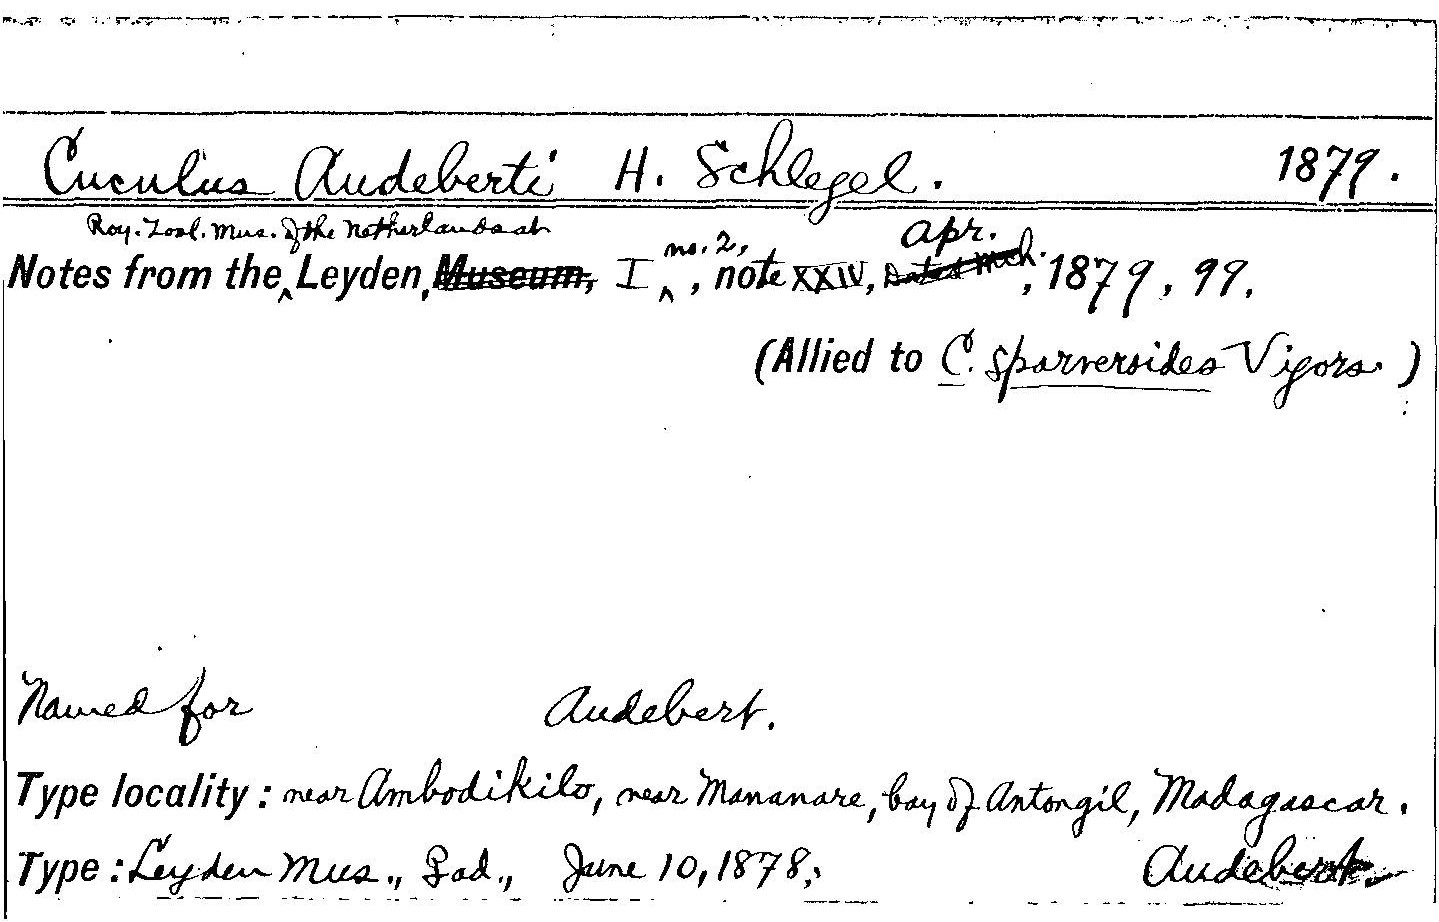 Cuculus Audeberti H. Schlegel. 1879.
Roy. Zool. Mus. of the Netherlands at
no. 2, Apr.
Notes from the Leyden, Museum, I, note XXIV, Dated Mch. , 1879, 99.
(Allied to C. sparveroides Vigors.)
Named for Audebert.
Type locality: near Ambodikilo, near Mananare, bay of Antongil, Madagascar.
Type: Leyden Mus., ad., June 10, 1878; Audebert.